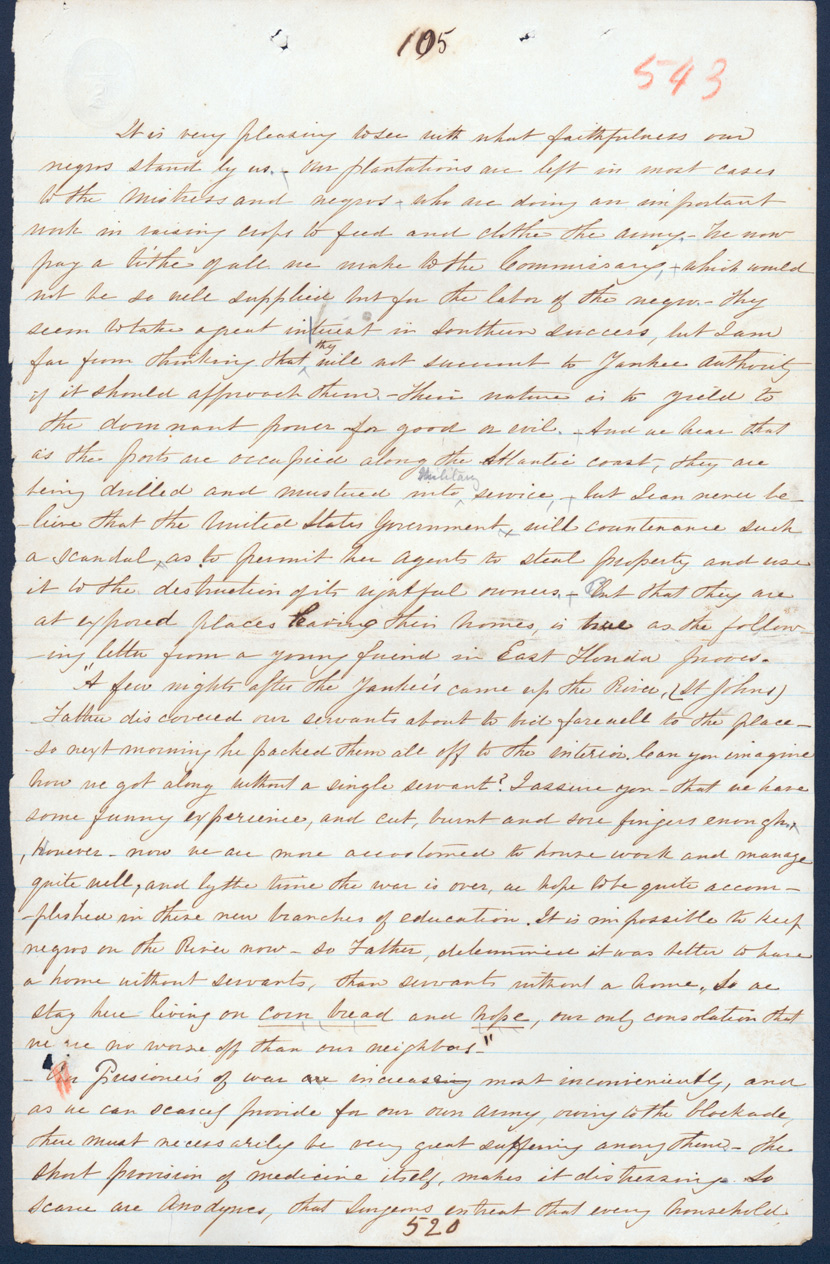 105
543
It is very pleasing to see with what faithfulness our
negros stand by us. - Our plantations are left in most cases
to the mistress and negros - who are doing an important
work in raising crops to feed and clothe the army. - We now
pay a tithe of all we make to the Commissary, - which would
not be so well supplied but for the labor of the negro. - They
seem to take a great interest in Southern success, but I am
far from thinking that they will not succumb to Yankee authority
if it should approach them. - Their nature is to yield to
the dominant power - for good or evil. - And we hear that
as the ports are occupied along the Atlantic coast, they are
Military
being drilled and mustered into service, - but I can never be-
-lieve that the United States Government will countenance such
a scandal, as to permit her agents to steal property and use
it to the destruction of its rightful owners. - But that they are
at exposed places leaving their homes, is true as the follow-
-ing letter from a young friend in East Florida proves.
"A few nights after the Yankee's came up the River, (St Johns)
Father discovered our servants about to bid farewell to the place -
-so next morning he packed them all off to the interior. Can you imagine
how we got along without a single servant? I assure you - that we have
some funny experience, and cut, burnt and sore fingers enough.
However - now we are more accustomed to house work and manage
quite well, and by the time the war is over, we hope to be quite accom-
-plished in these new branches of education. It is impossible to keep
negros on the River now - so Father, determined it was better to have
a home without servants, than servants without a home. So we
stay here living on corn bread and hope, our only consolation that
we are no worse off than our neighbors -"
- Our Prisoner's of war are increasing most inconveniently, and
as we can scarcely provide for our own army, owing to the blockade,
there must necessarily be very great suffering among them. - The
short provision of medicine itself, makes it distressing. So
scarce are Anodynes, that Surgeons entreat that every household
520